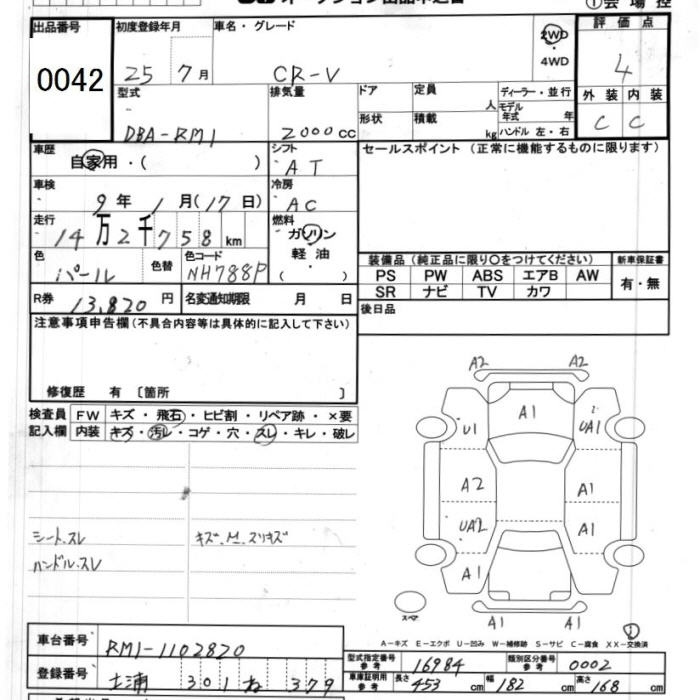 出品番号 初度登録年月 車名・グレード 評価点
0042 25 7月 CR-V 2WD 4
・4WD
外装 内装
C C
型式 排気量 ドア 定員 人 ディーラー・並行
DBA-RM1 2000cc 形状 積載 kg モデル年式 年
ハンドル 左・右
車歴 シフト セールスポイント (正常に機能するものに限ります)
自家用・( ) AT
車検 冷房
9年 1月(17日) AC
走行 燃料
14万2千758km ガソリン
軽油
( )
色 色替 色コード
パール NH788P
装備品 (純正品に限り○をつけてください) 新車保証書
PS PW ABS エアB AW 有・無
SR ナビ TV カワ
R券 13,820円 名変通知期限 月 日
後日品
注意事項申告欄(不具合内容等は具体的に記入して下さい)
修復歴 有 〔箇所 〕
検査員 FW キズ・飛石・ヒビ割・リペア跡・×要
記入欄 内装 キズ・汚レ・コゲ・穴・スレ・キレ・破レ
シート.スレ キズ.M.スリキズ
ハンドル.スレ
A2 A2
A1
U1 UA1
A2 A1
UA2 A1
A1
A1 A1
スペア
A-キズ E-エクボ U-凹み W-補修跡 S-サビ C-腐食 XX-交換済
車台番号 RM1-1102820
型式指定番号 参考 16984 類別区分番号 参考 0002
登録番号 土浦 301 ね 379
車庫証明用 参考 長さ 453cm 幅 182cm 高さ 168cm